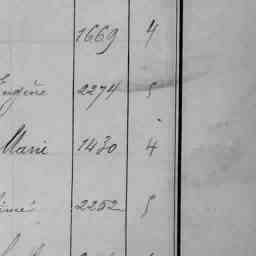 1669 4
Eugène 2274 5
Marie 1430 4
2252 5